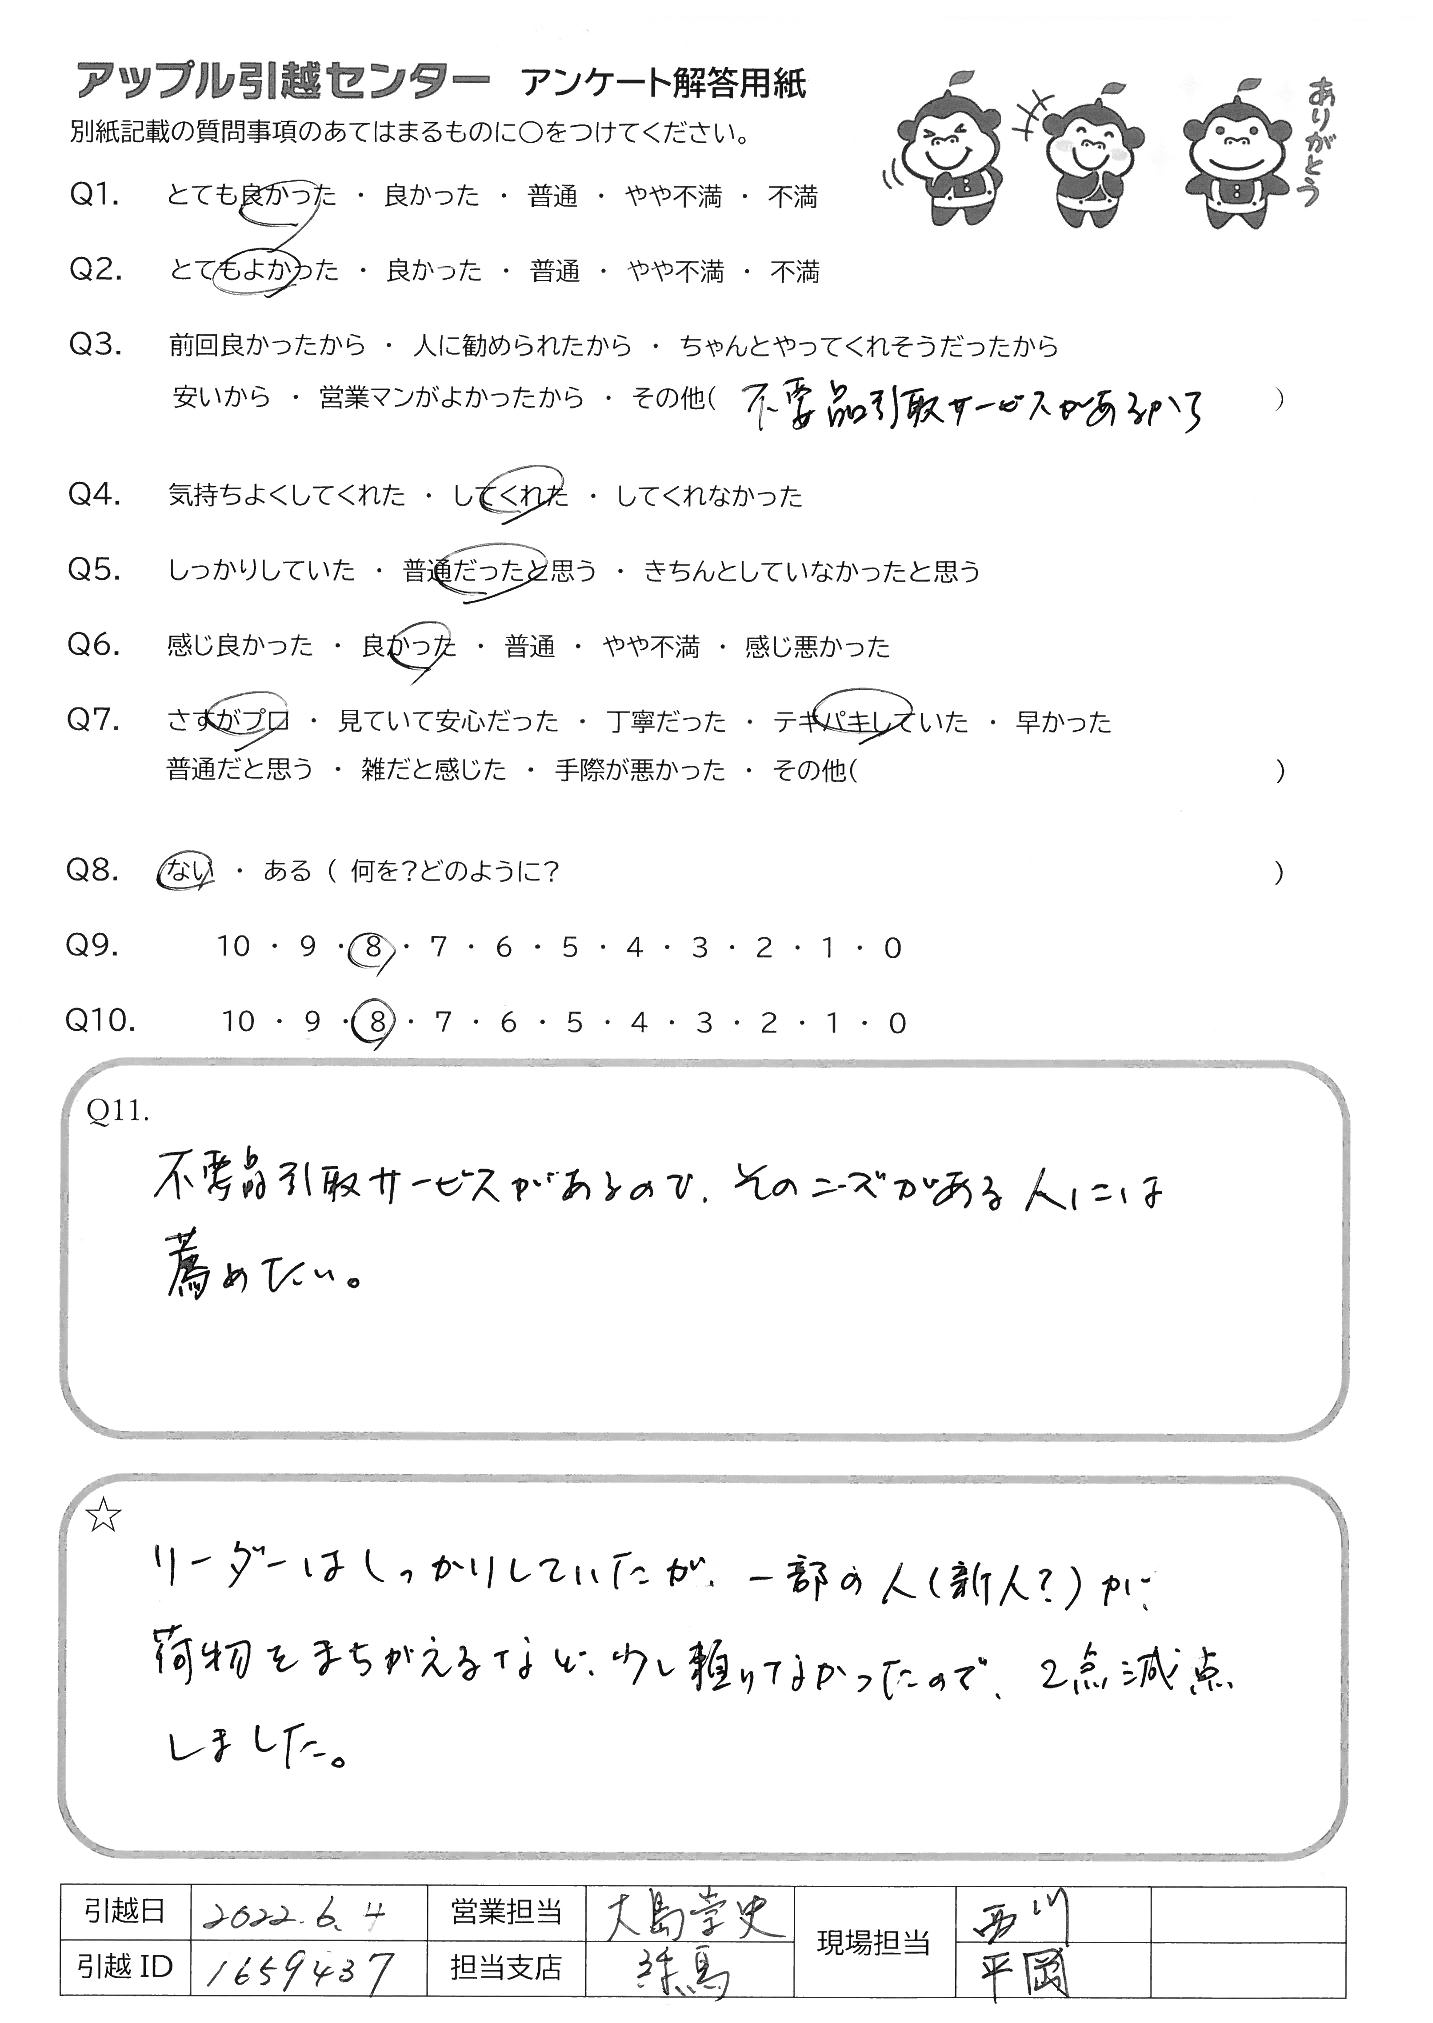 アップル引越センター アンケート解答用紙
別紙記載の質問事項のあてはまるものに○をつけてください。
ありがとう
Q1. とても良かった ・ 良かった ・ 普通 ・ やや不満 ・ 不満
Q2. とてもよかった ・ 良かった ・ 普通 ・ やや不満 ・ 不満
Q3. 前回良かったから ・ 人に勧められたから ・ ちゃんとやってくれそうだったから
安いから ・ 営業マンがよかったから ・ その他( 不要品引取サービスがあるから )
Q4. 気持ちよくしてくれた ・ してくれた ・ してくれなかった
Q5. しっかりしていた ・ 普通だったと思う ・ きちんとしていなかったと思う
Q6. 感じ良かった ・ 良かった ・ 普通 ・ やや不満 ・ 感じ悪かった
Q7. さすがプロ ・ 見ていて安心だった ・ 丁寧だった ・ テキパキしていた ・ 早かった
普通だと思う ・ 雑だと感じた ・ 手際が悪かった ・ その他( )
Q8. ない ・ ある ( 何を?どのように? )
Q9. 10 ・ 9 ・ 8 ・ 7 ・ 6 ・ 5 ・ 4 ・ 3 ・ 2 ・ 1 ・ 0
Q10. 10 ・ 9 ・ 8 ・ 7 ・ 6 ・ 5 ・ 4 ・ 3 ・ 2 ・ 1 ・ 0
Q11.
不要品引取サービスがあるので、そのニーズがある人には
薦めたい。
☆
リーダーはしっかりしていたが、一部の人(新人?)が、
荷物をまちがえるなど、少し頼りなかったので、2点減点
しました。
引越日 2022.6.4 営業担当 大島学史 現場担当 西川
引越ID 1659437 担当支店 練馬 平岡